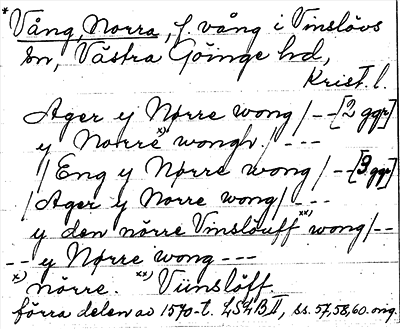 * Vång, Norra, f. vång i Vinslövs
sn, Västra Göinge hd,
Krist. l.
Ager y Nørre wong /--[2 ggr]
y Norre x) wongh./ ---
/Eng y Nørre wong /--[3 ggr]
/Ager y Norre wong/---
y den nörre Vinslöuff xx) wong/--
-- y Nørre wong ---
x) nörre. xx) Viinslöff
förra delen av 1570-t. LSHB II, ss. 57,58,60. orig.